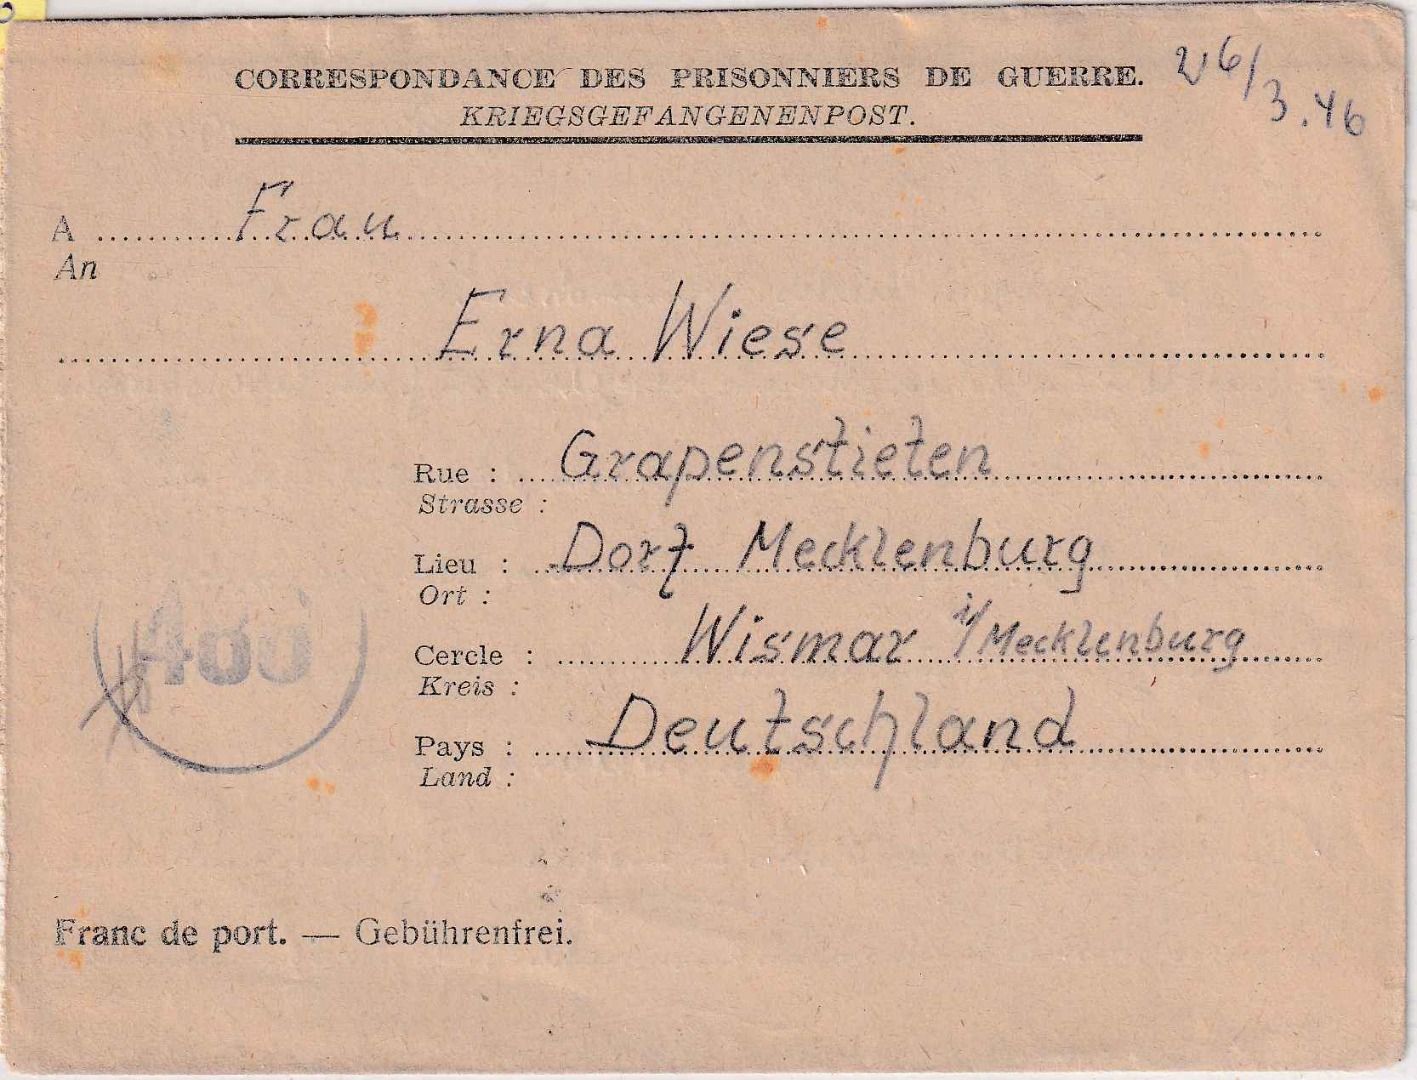 CORRESPONDANCE DES PRISONNIERS DE GUERRE.
KRIEGSGEFANGENENPOST.
26/3.46
A Frau
An
Erna Wiese
Rue : Grapenstieten
Strasse :
Lieu : Dorf Mecklenburg
Ort :
Cercle : Wismar i/Mecklenburg
Kreis :
Pays : Deutschland
Land :
460
Franc de port. — Gebührenfrei.